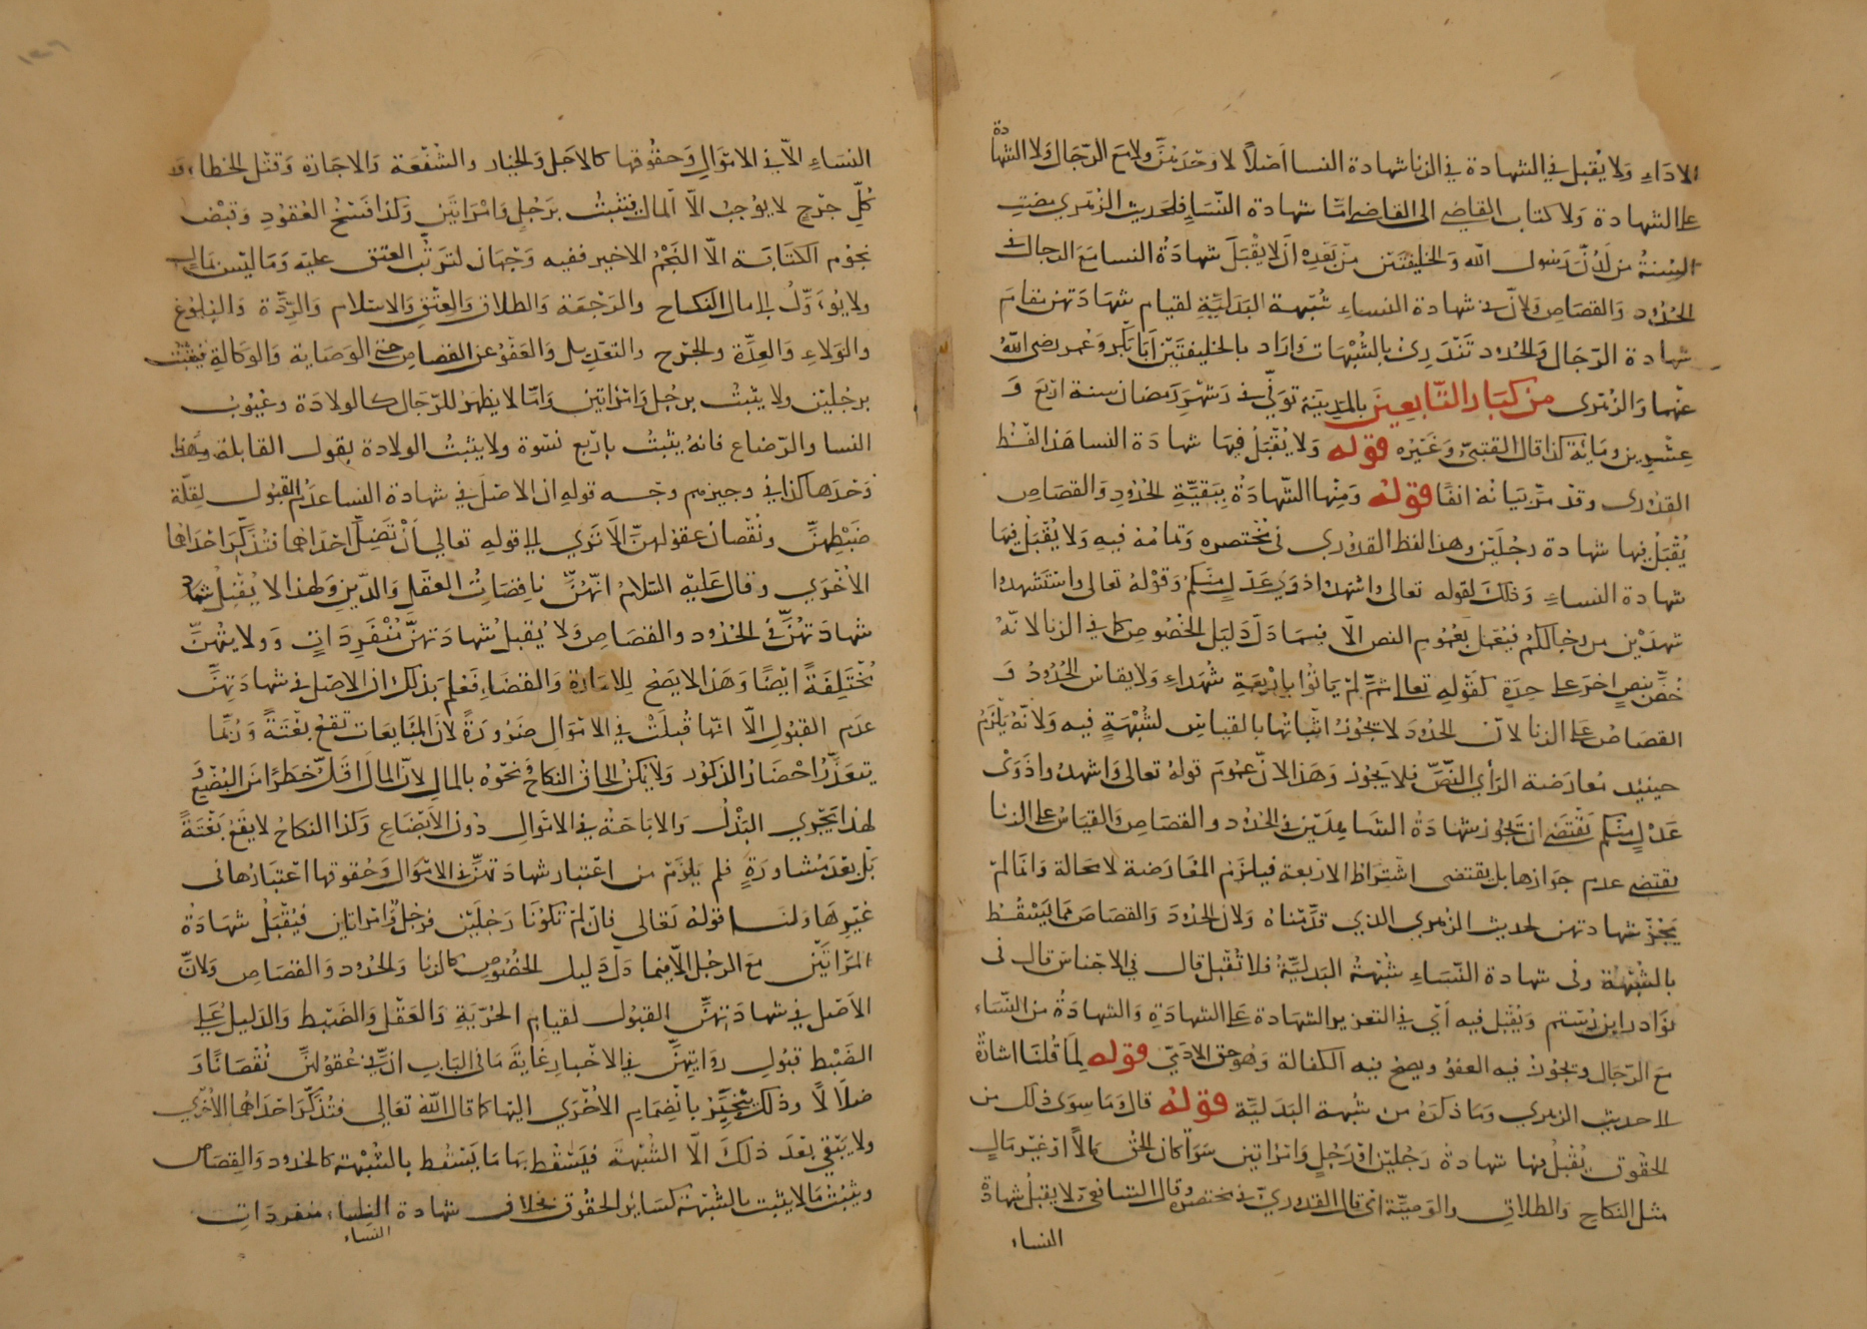 الاداء ولا يقبل في الشهادة في الزنا شهادة النسا اصلا لا وحدهن ولا مع الرجال ولا الشهادة
على الشهادة ولا كتاب القاضي الى القاضي امّا شهادة النساء فلحديث الزهري مضت
السنة من لدن رسول الله والخليفتين من بعده ان لا يقبل شهادة النسا مع الرجال في
الحدود والقصاص ولانّ في شهادة النساء شبهة البدلية لقيام شهادتهن مقام
شهادة الرجال والحدود تندرئ بالشبهات واراد بالخليفتين ابا بكر وعمر رضي الله
عنهما والزهري من كبار التابعين بالمدينة توفي في شهر رمضان سنة اربع و
عشرين ومائة كذا قال القتبي وغيره قوله ولا يقبل فيها شهادة النسا هذا لفظ
القدوري وقد مرّ بيانه انفا قوله ومنها الشهادة ببقية الحدود والقصاص
يقبل فيها شهادة رجلين وهذا لفظ القدوري في مختصره وتمامه فيه ولا يقبل فيها
شهادة النساء وذلك لقوله تعالى واشهدوا ذوي عدل منكم وقوله تعالى واستشهدوا
شهيدين من رجالكم فيعمل بعموم النص الّا فيما دلّ دليل الخصوص كما في الزنا لانه
خصّ بنص اخر على حدة كقوله تعالى ثمّ لم ياتوا باربعة شهداء ولا يقاس الحدود و
القصاص على الزنا لانّ الحدود لا يجوز اثباتها بالقياس لشبهة فيه ولانه يلزم
حينئذ معارضة الرأي النصّ فلا يجوز وهذا لانّ عموم قوله تعالى واشهدوا ذوى
عدل منكم يقتضي ان تجوز شهادة الشاهدين في الحدود والقصاص والقياس على الزنا
يقتضي عدم جوازها بل يقتضي اشتراط الاربعة فيلزم المعارضة لا محالة وانما لم
يجز شهادتهن لحديث الزهري الذي قدّمناه ولان الحدود والقصاص مما يسقط
بالشبهة وفي شهادة النساء شبهة البدلية فلا تقبل قال في الاجناس قال في
نوادر ابن رستم ويقبل فيه أي في التعزير الشهادة على الشهادة والشهادة من النساء
مع الرجال ويجوز فيه العفو ويصح فيه الكفالة وهو حق الادمي قوله لما قلنا اشارة
الى حديث الزهري وما ذكره من شبهة البدلية قوله قال وما سوى ذلك من
الحقوق يقبل فيها شهادة رجلين او رجل وامراتين سوا كان الحق مالًا او غير مال
مثل النكاح والطلاق والوصية اي قال القدوري في مختصره وقال الشافعي لا يقبل شهادة
النساء
النساء الّا في الاموال وحقوقها كالاجل والخيار والشفعة والاجارة وقتل الخطاء و
كلّ جرح لا يوجب الّا المال فتثبت برجل وامراتين وكذا فسخ العقود وقبض
نجوم الكتابة الّا النجم الاخير ففيه وجهان لترتب العتق عليه وما ليس بمال
ولا يؤدّل الى مال النكاح والرجعة والطلاق والعتق والاسلام والردّة والبلوغ
والولاء والعدّة والجرح والتعديل والعفو عن القصاص حتى الوصاية والوكالة فيثبت
برجلين ولا يثبت برجل وامراتين وامّا لا يظهر للرجال كالولادة وعيوب
النسا والرضاع فانه يثبت باربع نسوة ولا يثبت الولادة بقول القابلة
وحدها كذا في وجيزهم وجه قوله ان الاصل في شهادة النسا عدم القبول لقلّة
ضبطهنّ ونقصان عقولهنّ الا ترى الى قوله تعالى أن تضلّ احداهما فتذكر احداهما
الاخرى وقال عليه السلام انّهنّ ناقصات العقل والدين ولهذا لا يقبل
شهادتهنّ في الحدود والقصاص ولا يقبل شهادتهنّ منفردات وولايتهنّ
مختلفة ايضا وهذا لا يصح للامارة والقضاء فعلم بذلك ان الاصل في شهادتهنّ
عدم القبول الّا انها قبلت في الاموال ضرورة لان المبايعات تقع بغتة وربما
يتعذّر احضار الذكور ولا يمكن الحاق النكاح ونحوه بالمال لان المال اقلّ خطرا من البضع و
لهذا يجري البذل والاباحة في الاموال دون الابضاع وكذا النكاح لا يقع بغتة
بل بعد مشاورة فلم يلزم من اعتبار شهادتهنّ في الاموال وحقوقها اعتبارها في
غيرها ولنا قوله تعالى فان لم تكونا رجلين فرجل وامراتان فيقبل شهادة
المراتين مع الرجل الّا فيما دلّ دليل الخصوص كالزنا والحدود والقصاص ولانّ
الاصل في شهادتهنّ القبول لقيام الحرّية والعقل والضبط والدليل على
الضبط قبول روايتهنّ في الاخبار غاية ما في الباب انّ في عقولهنّ نقصانا و
ضلالًا وذلك ينجبر بانضمام الاخرى اليها كما قال الله تعالى فتذكر احداهما الاخرى
ولا يبقى بعد ذلك الّا الشبهة فيسقط بها ما يسقط بالشبهة كالحدود والقصاص
ويثبت ما لا يثبت بالشبهة كسائر الحقوق بخلاف شهادة النساء منفردات
النساء